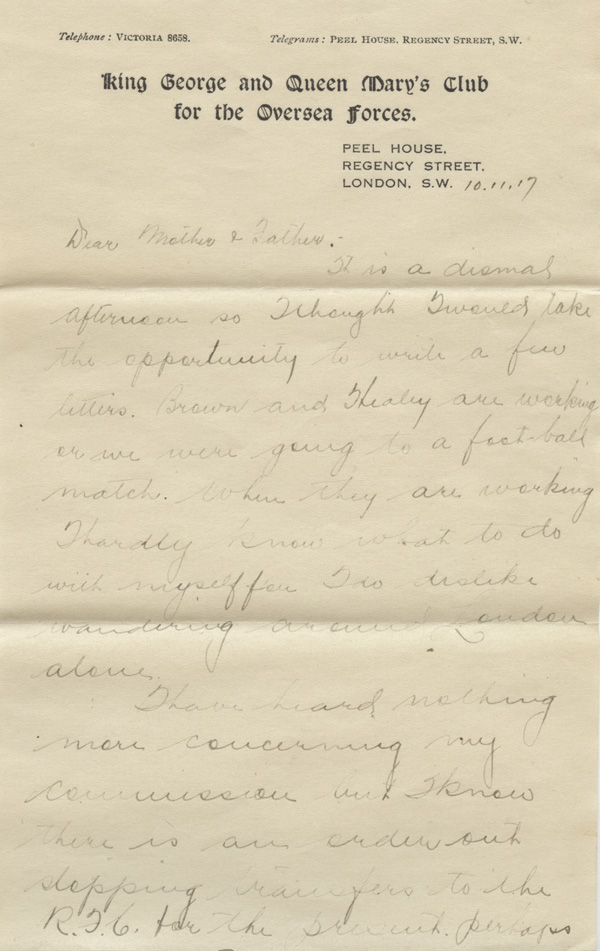 Telephone: VICTORIA 8658. Telegrams: PEEL HOUSE, REGENCY STREET, S.W.
King George and Queen Mary's Club
for the Oversea Forces.
PEEL HOUSE,
REGENCY STREET,
LONDON, S.W. 10.11.17
Dear Mother & Father:-
It is a dismal
afternoon so I thought I would take
the opportunity to write a few
letters. Brown and Healey are working
or we were going to a foot-ball
match. When they are working
I hardly know what to do
with myself for I do dislike
wandering around London
alone.
I have heard nothing
more concerning my
commission but I know
there is an order out
stopping transfers to the
R.F.C. for the present. perhaps